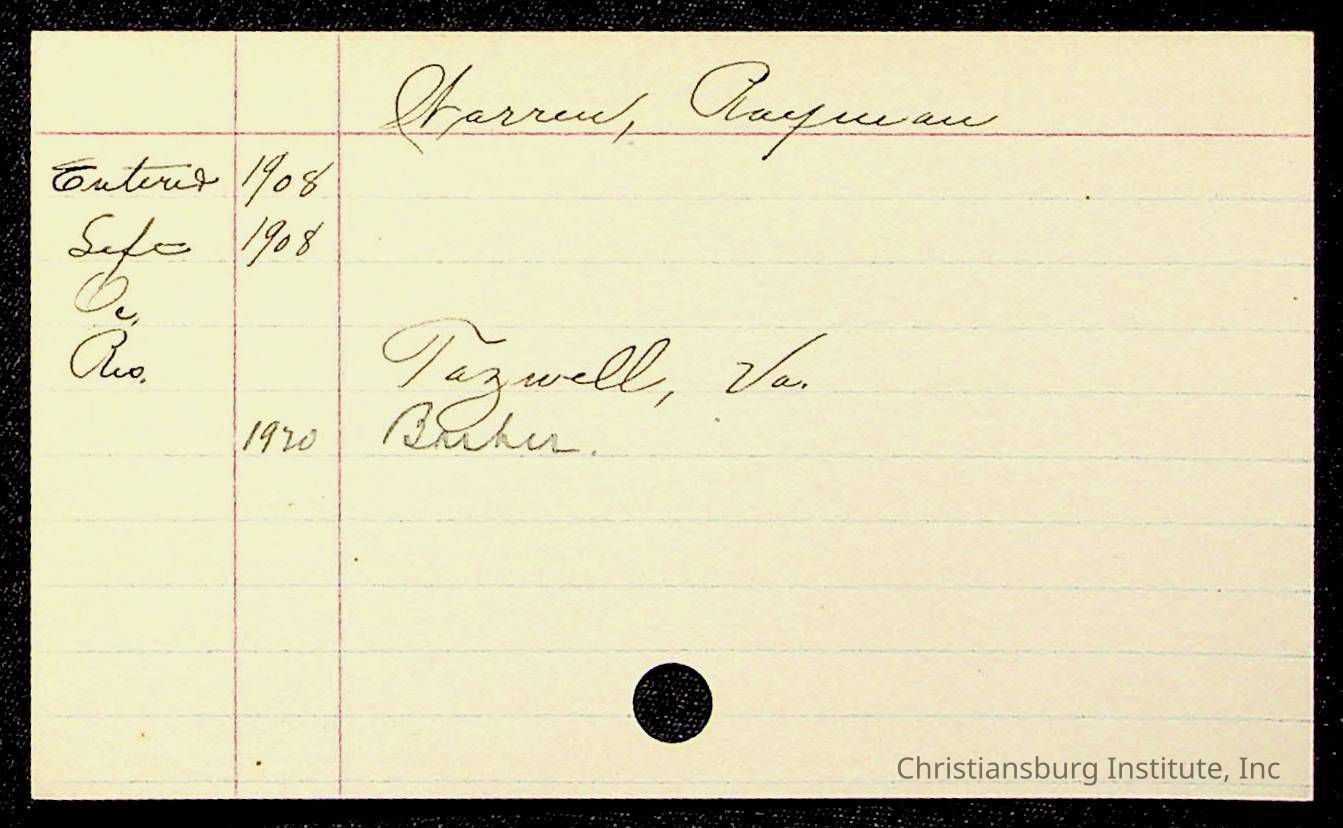 Warren, Rayman
Entered 1908
Left 1908
Oc.
Res. Tazwell, Va.
1920 Barber.
Christiansburg Institute, Inc